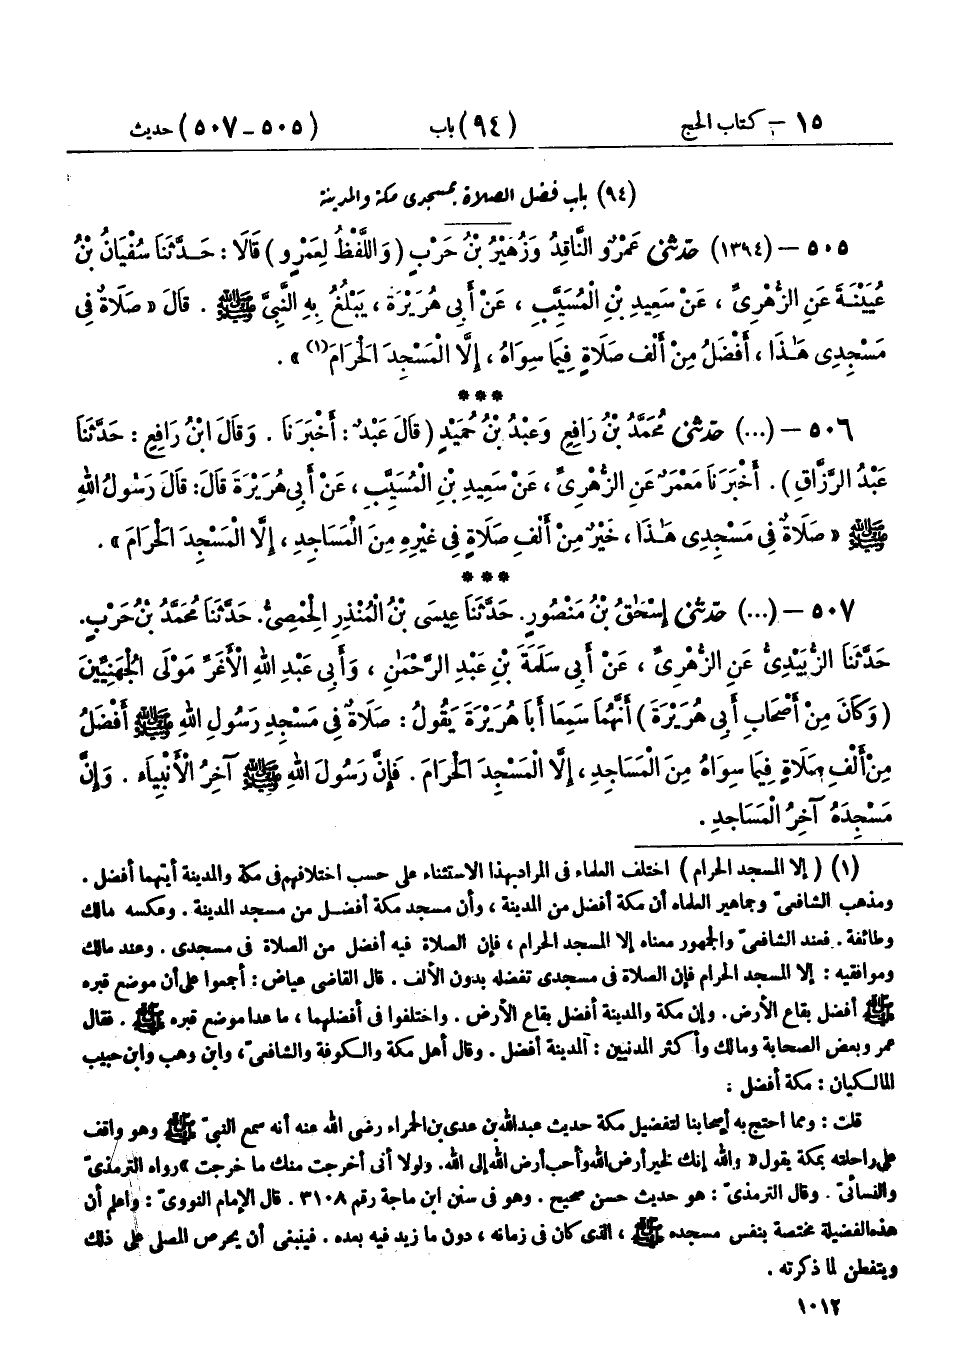 ١٥ – كتاب الحج (٩٤) باب (٥٠٥ – ٥٠٧) حديث
(٩٤) باب فضل الصلاة بمسجدى مكة والمدينة
٥٠٥ – (١٣٩٤) حَدَّثَنِي عَمْرٌو النَّاقِدُ وَزُهَيْرُ بْنُ حَرْبٍ (وَاللَّفْظُ لِعَمْرٍو) قَالَا : حَدَّثَنَا سُفْيَانُ بْنُ
عُيَيْنَةَ عَنِ الزُّهْرِىِّ ، عَنْ سَعِيدِ بْنِ الْمُسَيَّبِ ، عَنْ أَبِى هُرَيْرَةَ ، يَبْلُغُ بِهِ النَّبِىَّ ﷺ . قَالَ « صَلَاةٌ فِى
مَسْجِدِى هَٰذَا ، أَفْضَلُ مِنْ أَلْفِ صَلَاةٍ فِيمَا سِوَاهُ ، إِلَّا الْمَسْجِدَ الْحَرَامَ(١) » .
***
٥٠٦ – (...) حَدَّثَنِي مُحَمَّدُ بْنُ رَافِعٍ وَعَبْدُ بْنُ حُمَيْدٍ (قَالَ عَبْدٌ : أَخْبَرَنَا . وَقَالَ ابْنُ رَافِعٍ : حَدَّثَنَا
عَبْدُ الرَّزَّاقِ) . أَخْبَرَنَا مَعْمَرٌ عَنِ الزُّهْرِىِّ ، عَنْ سَعِيدِ بْنِ الْمُسَيَّبِ ، عَنْ أَبِى هُرَيْرَةَ قَالَ : قَالَ رَسُولُ اللهِ
ﷺ « صَلَاةٌ فِى مَسْجِدِى هَٰذَا ، خَيْرٌ مِنْ أَلْفِ صَلَاةٍ فِى غَيْرِهِ مِنَ الْمَسَاجِدِ ، إِلَّا الْمَسْجِدَ الْحَرَامَ » .
***
٥٠٧ – (...) حَدَّثَنِي إِسْحَٰقُ بْنُ مَنْصُورٍ. حَدَّثَنَا عِيسَى بْنُ الْمُنْذِرِ الْحِمْصِىُّ. حَدَّثَنَا مُحَمَّدُ بْنُ حَرْبٍ.
حَدَّثَنَا الزُّبَيْدِىُّ عَنِ الزُّهْرِىِّ ، عَنْ أَبِى سَلَمَةَ بْنِ عَبْدِ الرَّحْمَٰنِ ، وَأَبِى عَبْدِ اللهِ الْأَغَرِّ مَوْلَى الْجُهَنِيِّينَ
(وَكَانَ مِنْ أَصْحَابِ أَبِى هُرَيْرَةَ) أَنَّهُمَا سَمِعَا أَبَا هُرَيْرَةَ يَقُولُ : صَلَاةٌ فِى مَسْجِدِ رَسُولِ اللهِ ﷺ أَفْضَلُ
مِنْ أَلْفِ صَلَاةٍ فِيمَا سِوَاهُ مِنَ الْمَسَاجِدِ ، إِلَّا الْمَسْجِدَ الْحَرَامَ . فَإِنَّ رَسُولَ اللهِ ﷺ آخِرُ الْأَنْبِيَاءِ . وَإِنَّ
مَسْجِدَهُ آخِرُ الْمَسَاجِدِ .
(١) (إلا المسجد الحرام) اختلف العلماء فى المراد بهذا الاستثناء على حسب اختلافهم فى مكة والمدينة أيتهما أفضل .
ومذهب الشافعىّ وجماهير العلماء أن مكة أفضل من المدينة ، وأن مسجد مكة أفضل من مسجد المدينة . وعكسه مالك
وطائفة . فعند الشافعىّ والجمهور معناه إلا المسجد الحرام ، فإن الصلاة فيه أفضل من الصلاة فى مسجدى . وعند مالك
وموافقيه : إلا المسجد الحرام فإن الصلاة فى مسجدى تفضله بدون الألف . قال القاضى عياض : أجمعوا على أن موضع قبره
ﷺ أفضل بقاع الأرض. وإن مكة والمدينة أفضل بقاع الأرض . واختلفوا فى أفضلهما ، ما عدا موضع قبره ﷺ . فقال
عمر وبعض الصحابة ومالك وأكثر المدنيين : المدينة أفضل . وقال أهل مكة والكوفة والشافعىّ ، وابن وهب وابن حبيب
المالكيان : مكة أفضل :
قلت : ومما احتج به أصحابنا لتفضيل مكة حديث عبدالله بن عدى بن الحمراء رضى الله عنه أنه سمع النبىّ ﷺ وهو واقف
على راحلته بمكة يقول « والله إنك لخير أرض الله وأحب أرض الله إلى الله. ولولا أنى أخرجت منك ما خرجت » رواه الترمذىّ
والنسائىّ . وقال الترمذىّ : هو حديث حسن صحيح . وهو فى سنن ابن ماجة رقم ٣١٠٨ . قال الإمام النووىّ : واعلم أن
هذه الفضيلة مختصة بنفس مسجده ﷺ ، الذى كان فى زمانه ، دون ما زيد فيه بعده . فينبغى أن يحرص المصلى على ذلك
ويتفطن لما ذكرته .
١٠١٢